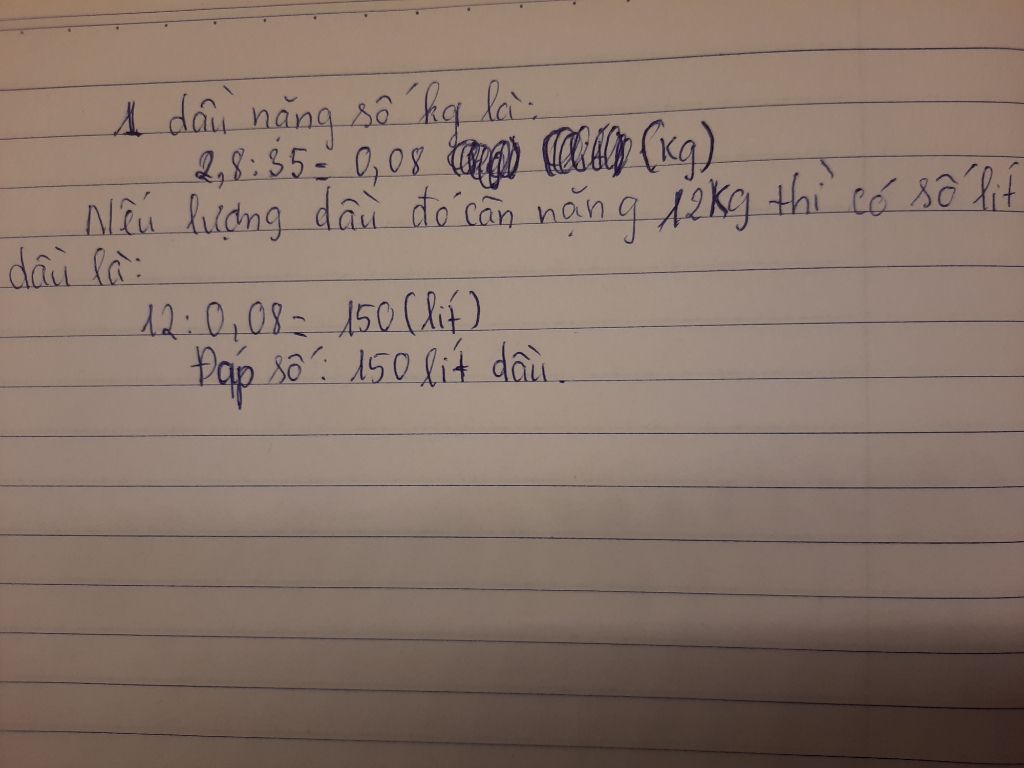 1 dầu nặng số kg là:
2,8 : 35 = 0,08 (kg)
Nếu lượng dầu đó cân nặng 12kg thì có số lít
dầu là:
12 : 0,08 = 150 (lít)
Đáp số: 150 lít dầu.